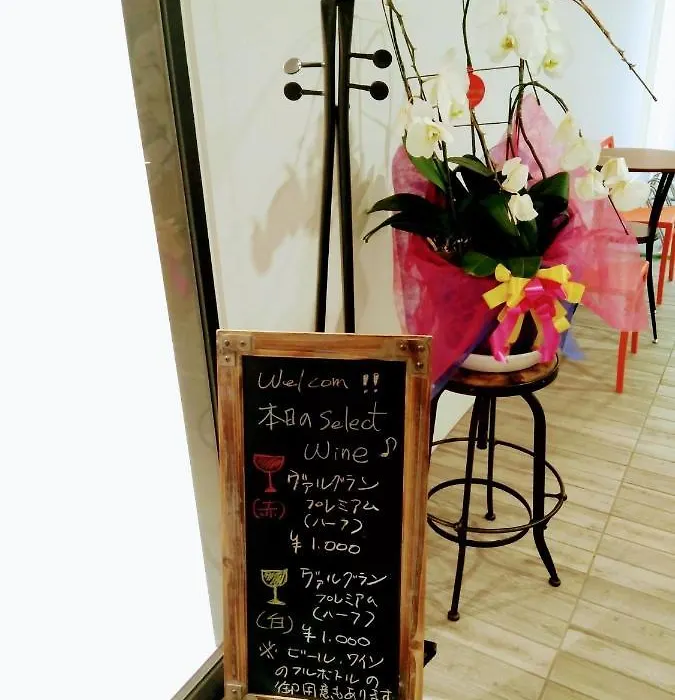 Welcom !!
本日の Select
Wine ♪
ヴァルグラン
(赤) プレミアム
(ハーフ)
¥1.000
ヴァルグラン
プレミアム
(ハーフ)
(白) ¥1.000
※ ビール、ワイン
のフルボトルの
御用意もあります